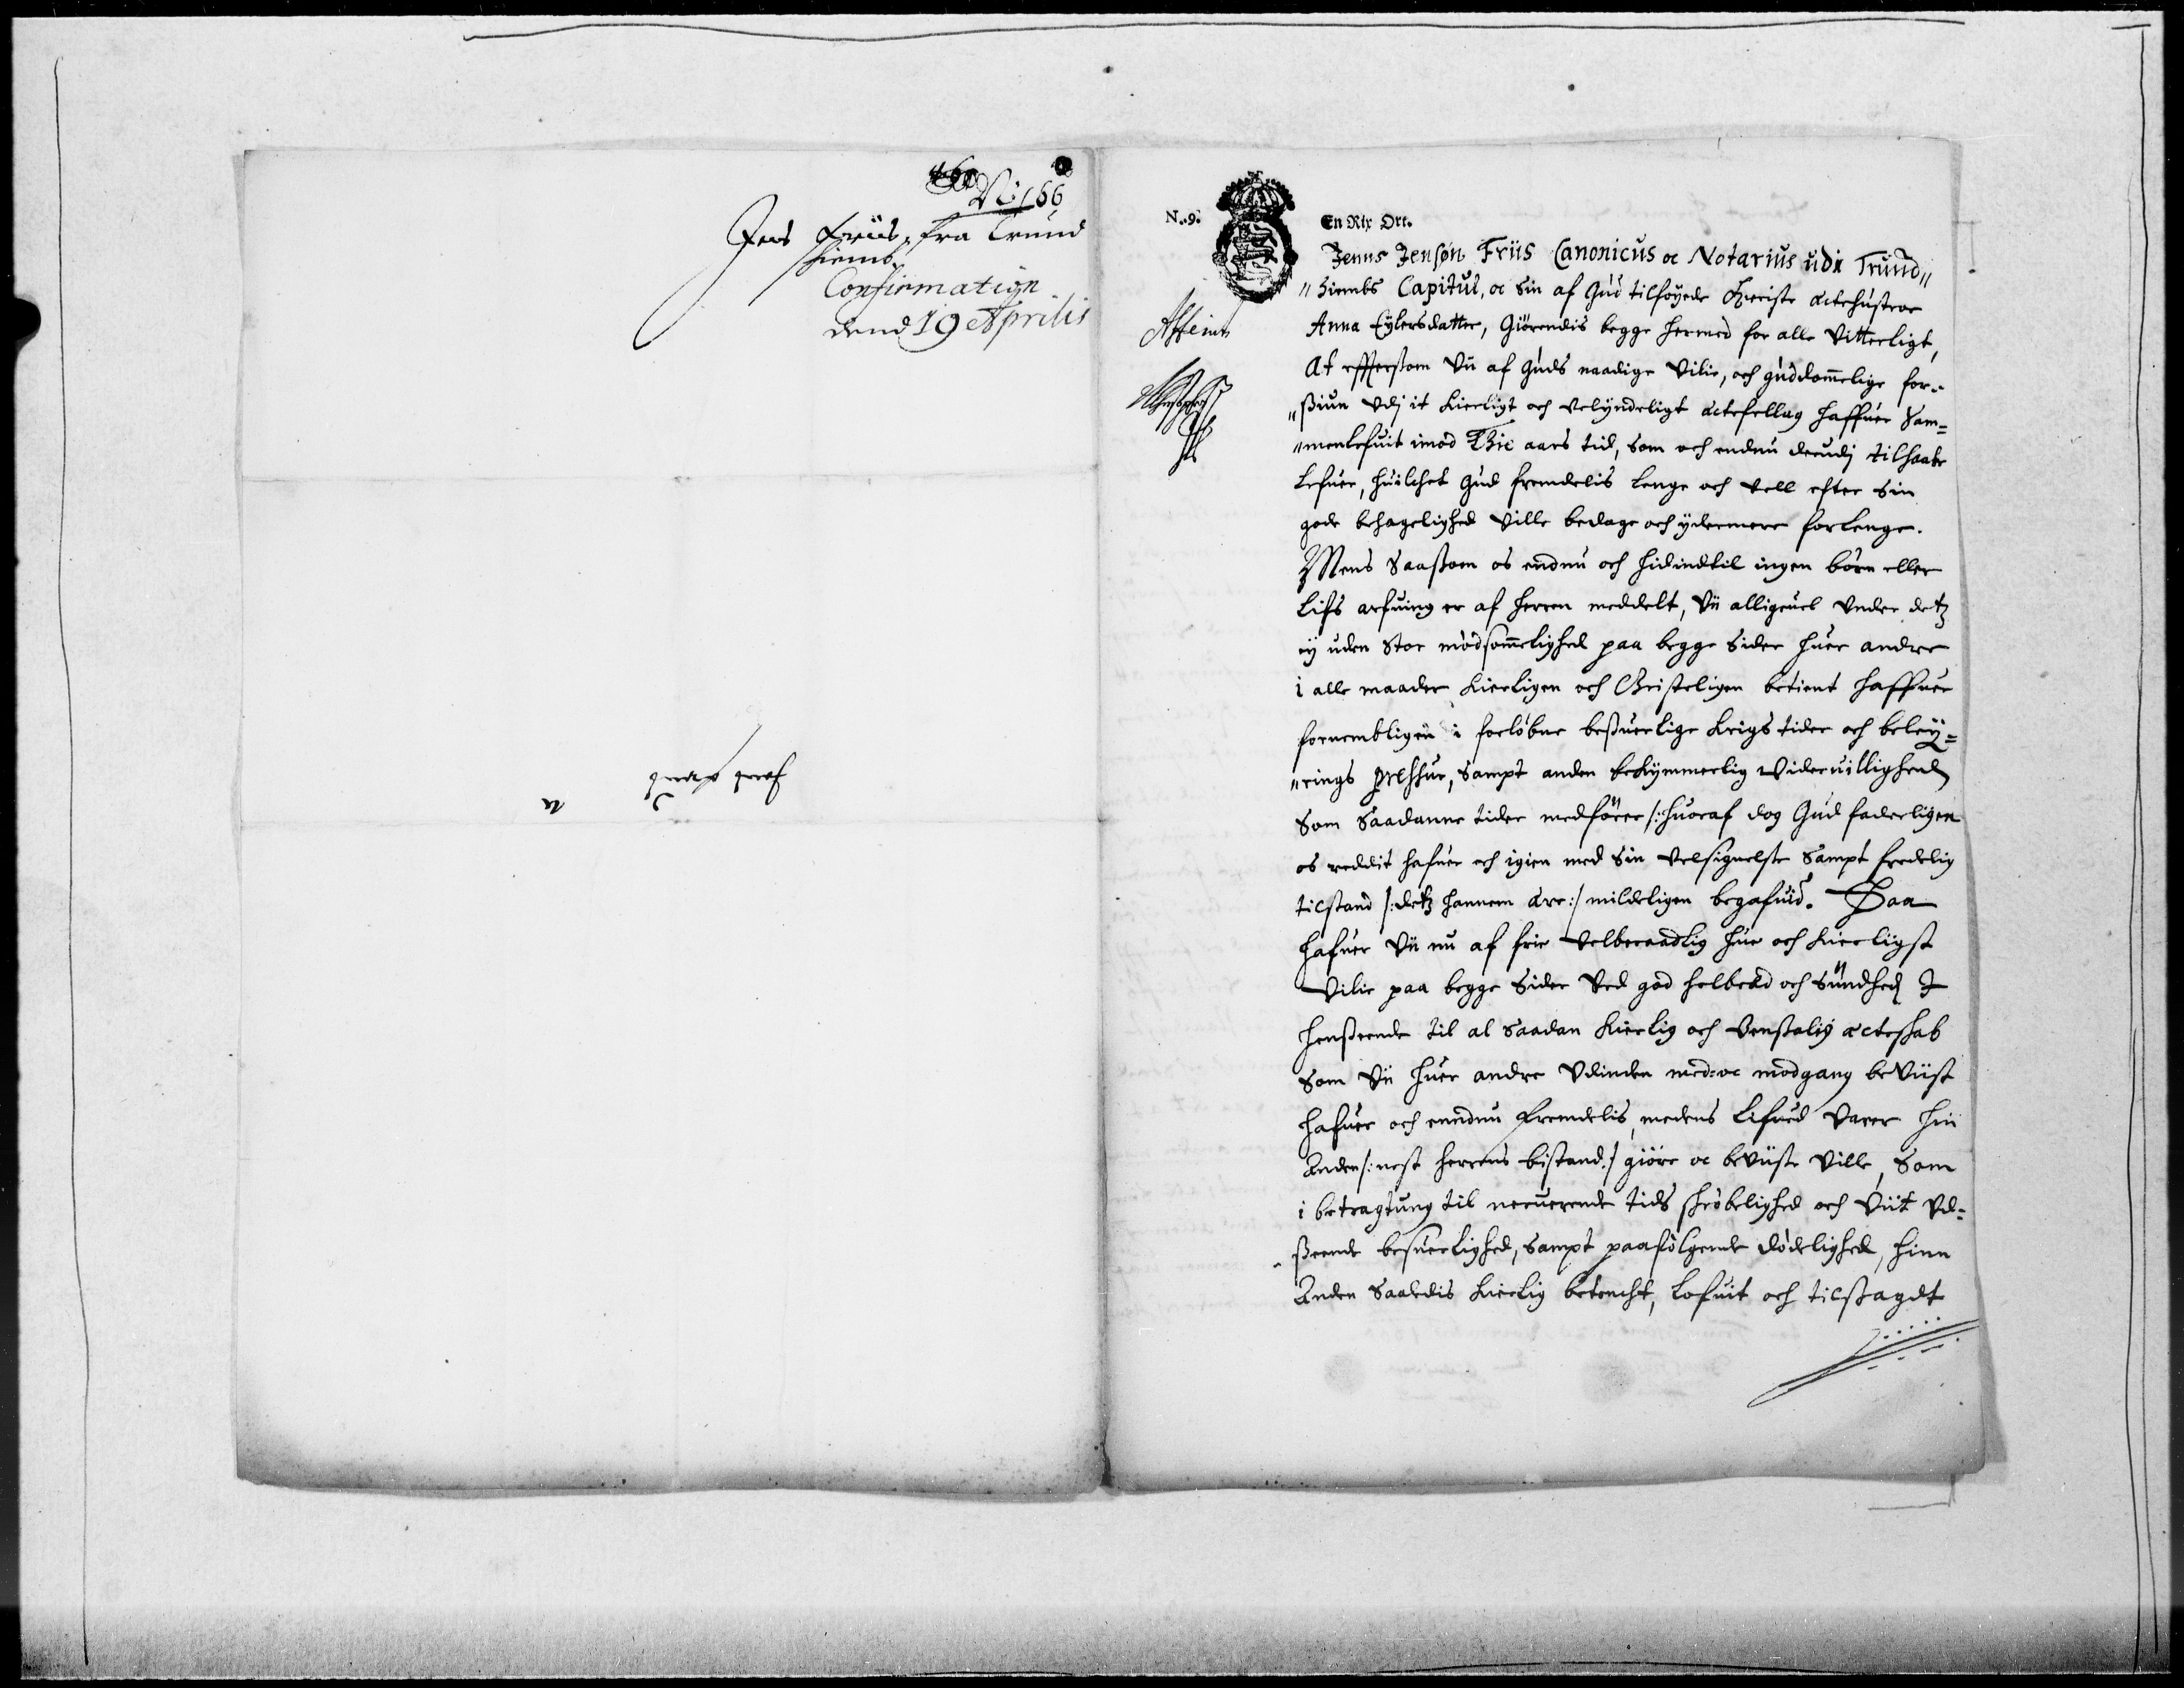 No: 166
Jens Friis fra Trund
hiems
Confirmation
dend 19 Aprilis
N. 9.
En Rix Ort.
Jenns Jensøn Friis Canonicus oc Notarius udi Trund„
„hiembs Capitul, oc Sin af Gud tilføyede Kieriste ectehustroe
Anna Eylersdatter, Giörendis begge hermed for alle Vitterligt,
At effterssom Vii af Guds naadige Vilie, och guddommelige for„
„ssiun Vdj it Kierligt och velyndeligt ectefellug haffuer Sam=
„menlefuit imod Thie aars tid, Som och endnu derudj tilhaabe
Lefuer, huilchet Gud fremdelis lenge och vell efter Sin
gode behagelighed Ville bedage och ydermere forlenge.
Mens Saassom os endnu och hidindtil ingen börn eller
Lifs arfuing er af herren meddelt, Vii alligeuel Vnder detz
ey uden Stor mödsommelighed paa begge Sider huer andre
i alle maader Kierligen och Christeligen betient haffuer
fornembligen i forlöbne beßuerlige Krigs tider och beley=
„rings presshur, Sampt anden bekymmerlig Vidervillighed
Som Saadanne tider medförer /: huoraf dog Gud faderligen
os reddit hafuer och igien med Sin Velsignelse Sampt fredelig
tilstand /: detz hannem ære :/ mildeligen begafuid. Daa
hafuer Vii nu af frie Velberaadlig hue och Kierligst
Vilie paa begge Sider Ved god helbred och Sundhed J
henseende til al Saadan Kierlig och Venssalig ecteskab
Som Vii huer andre Vdinden med= oc modgang beviist
hafuer och enndnu fremdelis, medens Lifued Varer hin
Anden /: nest herrens bistand :/ giöre oc beviise Ville, Som
i betragtung til neruerende tids skröbelighed och Viit Vd=
sseende besuerlighed, Sampt paafölgende dödelighed, hinn
Anden Saaledis Kierlig betencht, Lofuit och tilssagdt